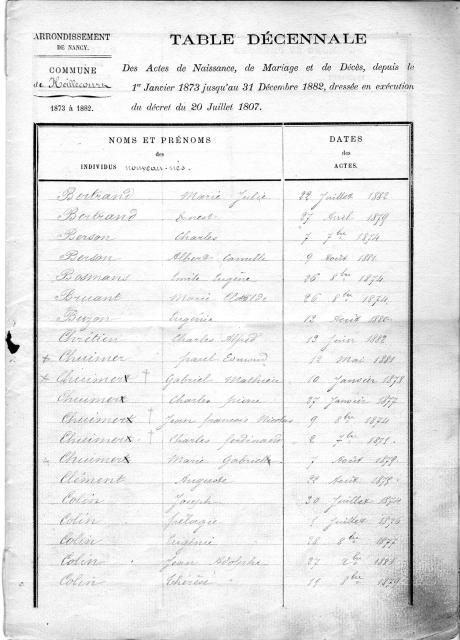 ARRONDISSEMENT
DE NANCY.
COMMUNE
de Heillecourt
1873 à 1882.
TABLE DÉCENNALE
Des Actes de Naissance, de Mariage et de Décès, depuis le
1er Janvier 1873 jusqu'au 31 Décembre 1882, dressée en exécution
du décret du 20 Juillet 1807.
NOMS ET PRÉNOMS
des
INDIVIDUS nouveau-nés.
DATES
des
ACTES.
Bertrand Marie Julie 22 Juillet 1882
Bertrand Ernest 27 Avril 1879
Berson Charles 7 7bre 1874
Berson Albert Camille 9 Août 1881
Bosmans Emile Eugène 26 8bre 1874
Bruant Marie 26 8bre 1874
Buzon Eugénie 12 Août 1880
Chrétien Charles Alfred 13 1882
Chuimer paul Edmond 12 Mai 1881
Chuimer † Gabriel Mathieu 10 Janvier 1878
Chuimer Charles pierre 27 Janvier 1877
Chuimer † Jean francois Nicolas 9 8bre 1874
Chuimer † Charles ferdinand 2 7bre 1875
Chuimer Marie Gabriel 7 Août 1879
Clément Auguste 22 Août 1875
Colin Joseph 20 Juillet 1874
Colin pélagie Juillet 1876
Colin Eugénie 28 8bre 1877
Colin Jean Adolphe 27 1881
Colin Thérèse 8bre 1879